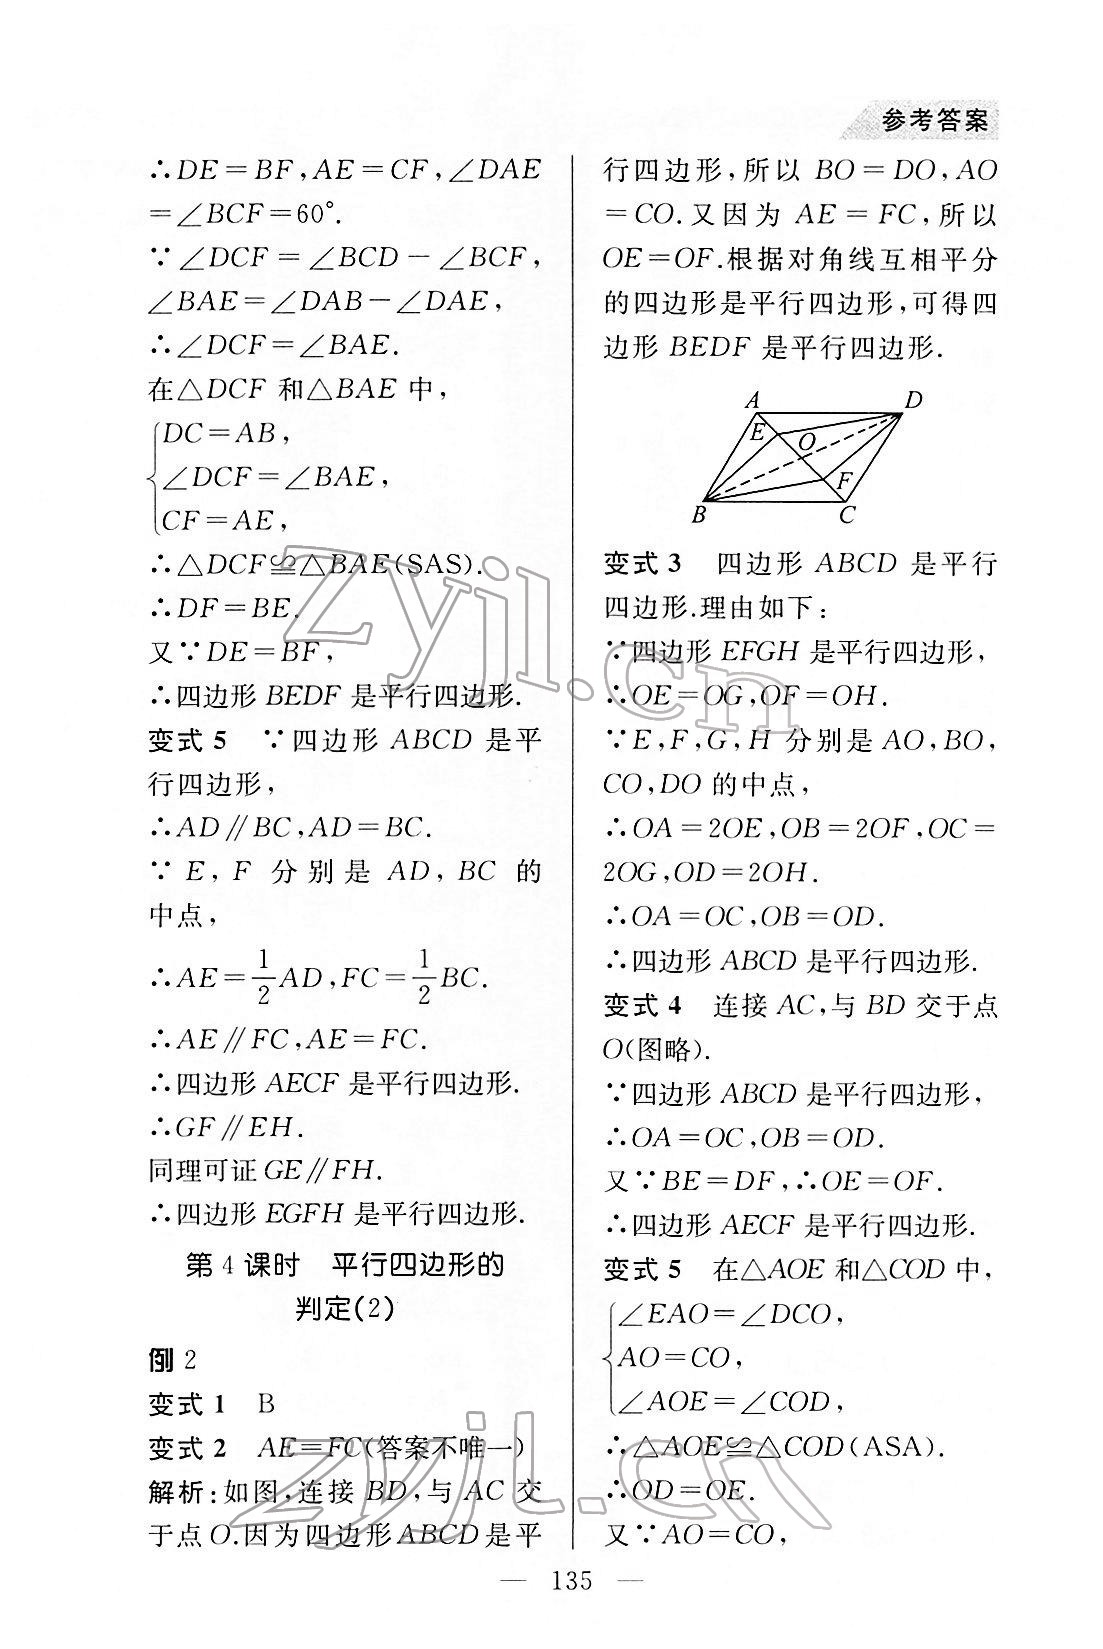 参考答案
∴DE=BF,AE=CF,∠DAE
=∠BCF=60°.
∵∠DCF=∠BCD-∠BCF,
∠BAE=∠DAB-∠DAE,
∴∠DCF=∠BAE.
在△DCF和△BAE中,
DC=AB,
∠DCF=∠BAE,
CF=AE,
∴△DCF≌△BAE(SAS).
∴DF=BE.
又∵DE=BF,
∴四边形BEDF是平行四边形.
变式5 ∵四边形ABCD是平
行四边形,
∴AD∥BC,AD=BC.
∵E,F分别是AD,BC的
中点,
∴AE=1/2AD,FC=1/2BC.
∴AE∥FC,AE=FC.
∴四边形AECF是平行四边形.
∴GF∥EH.
同理可证GE∥FH.
∴四边形EGFH是平行四边形.
第4课时 平行四边形的
判定(2)
例2
变式1 B
变式2 AE=FC(答案不唯一)
解析:如图,连接BD,与AC交
于点O.因为四边形ABCD是平
行四边形,所以BO=DO,AO
=CO.又因为AE=FC,所以
OE=OF.根据对角线互相平分
的四边形是平行四边形,可得四
边形BEDF是平行四边形.
A D
E O
F
B C
变式3 四边形ABCD是平行
四边形.理由如下:
∵四边形EFGH是平行四边形,
∴OE=OG,OF=OH.
∵E,F,G,H分别是AO,BO,
CO,DO的中点,
∴OA=2OE,OB=2OF,OC=
2OG,OD=2OH.
∴OA=OC,OB=OD.
∴四边形ABCD是平行四边形.
变式4 连接AC,与BD交于点
O(图略).
∵四边形ABCD是平行四边形,
∴OA=OC,OB=OD.
又∵BE=DF,∴OE=OF.
∴四边形AECF是平行四边形.
变式5 在△AOE和△COD中,
∠EAO=∠DCO,
AO=CO,
∠AOE=∠COD,
∴△AOE≌△COD(ASA).
∴OD=OE.
又∵AO=CO,
— 135 —
zyjl.cn
zyjl.cn